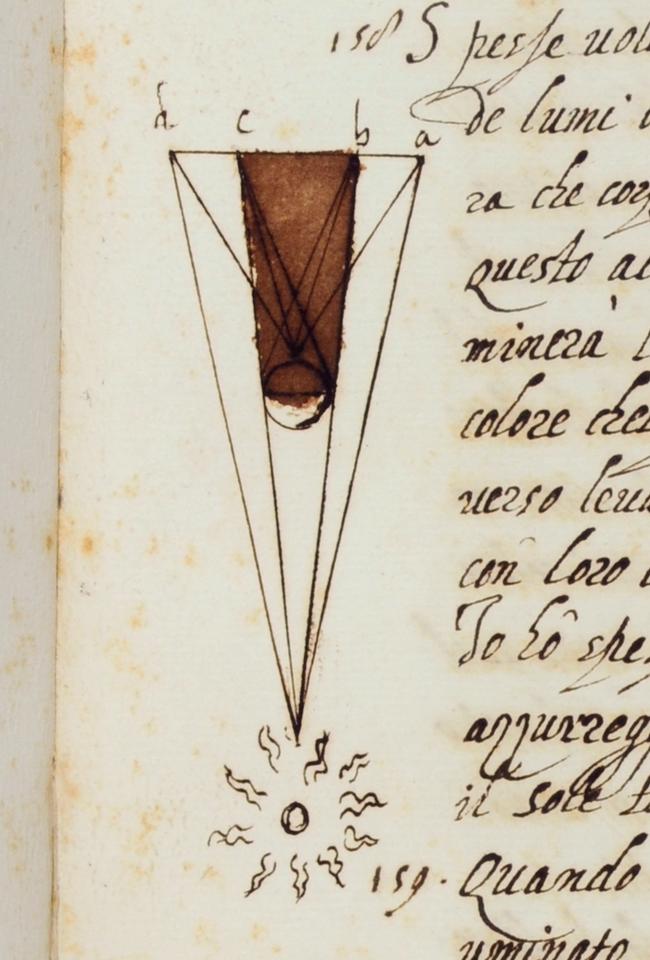 158 Spesse uol
d c b a
de lumi
ra che cor
questo a
minerà l
colore che
uerso leua
con loro
Io hò spe
azzurreg
il sole
159. Quando
uminato